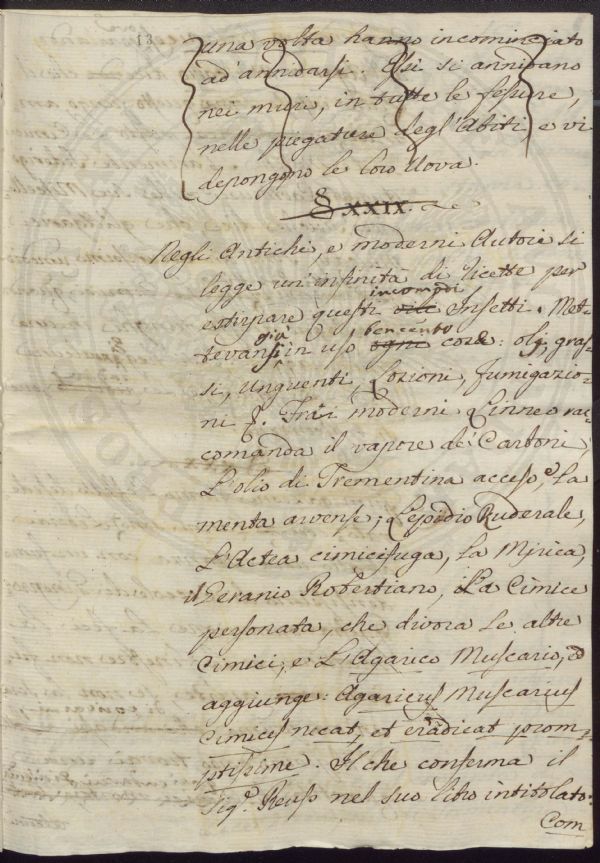 13
una volta hanno incominciato
ad' annidarsi. Essi si annidano
nei muri, in tutte le fessure,
nelle piegature degl'Abiti e vi
depongono le loro Uova.
§ XXIX.
Negli Antichi, e moderni Autori si
legge un'infinità di ricette per
incomodi
estirpare questi vili Insetti. Met-
già bencento
tevansi in uso ogni cose: olj, gras-
si, Unguenti, Lozioni, fumigazio-
ni &. Frai moderni Linneo rac-
comanda il vapore de' Carboni,
L'olio di Trementina acceso, La
menta arvense, Lepidio Ruderale,
L'Actea cimicifuga, La Mirica,
il Geranio Robertiano, La Cimice
personata, che divora Le altre
Cimici, e L'Agarico Muscario, ed
aggiunge: Agaricus Muscarius
Cimices necat, et eradicat prom-
ptissime. Il che conferma il
Sigr. Reuss nel suo libro intitolato:
Com